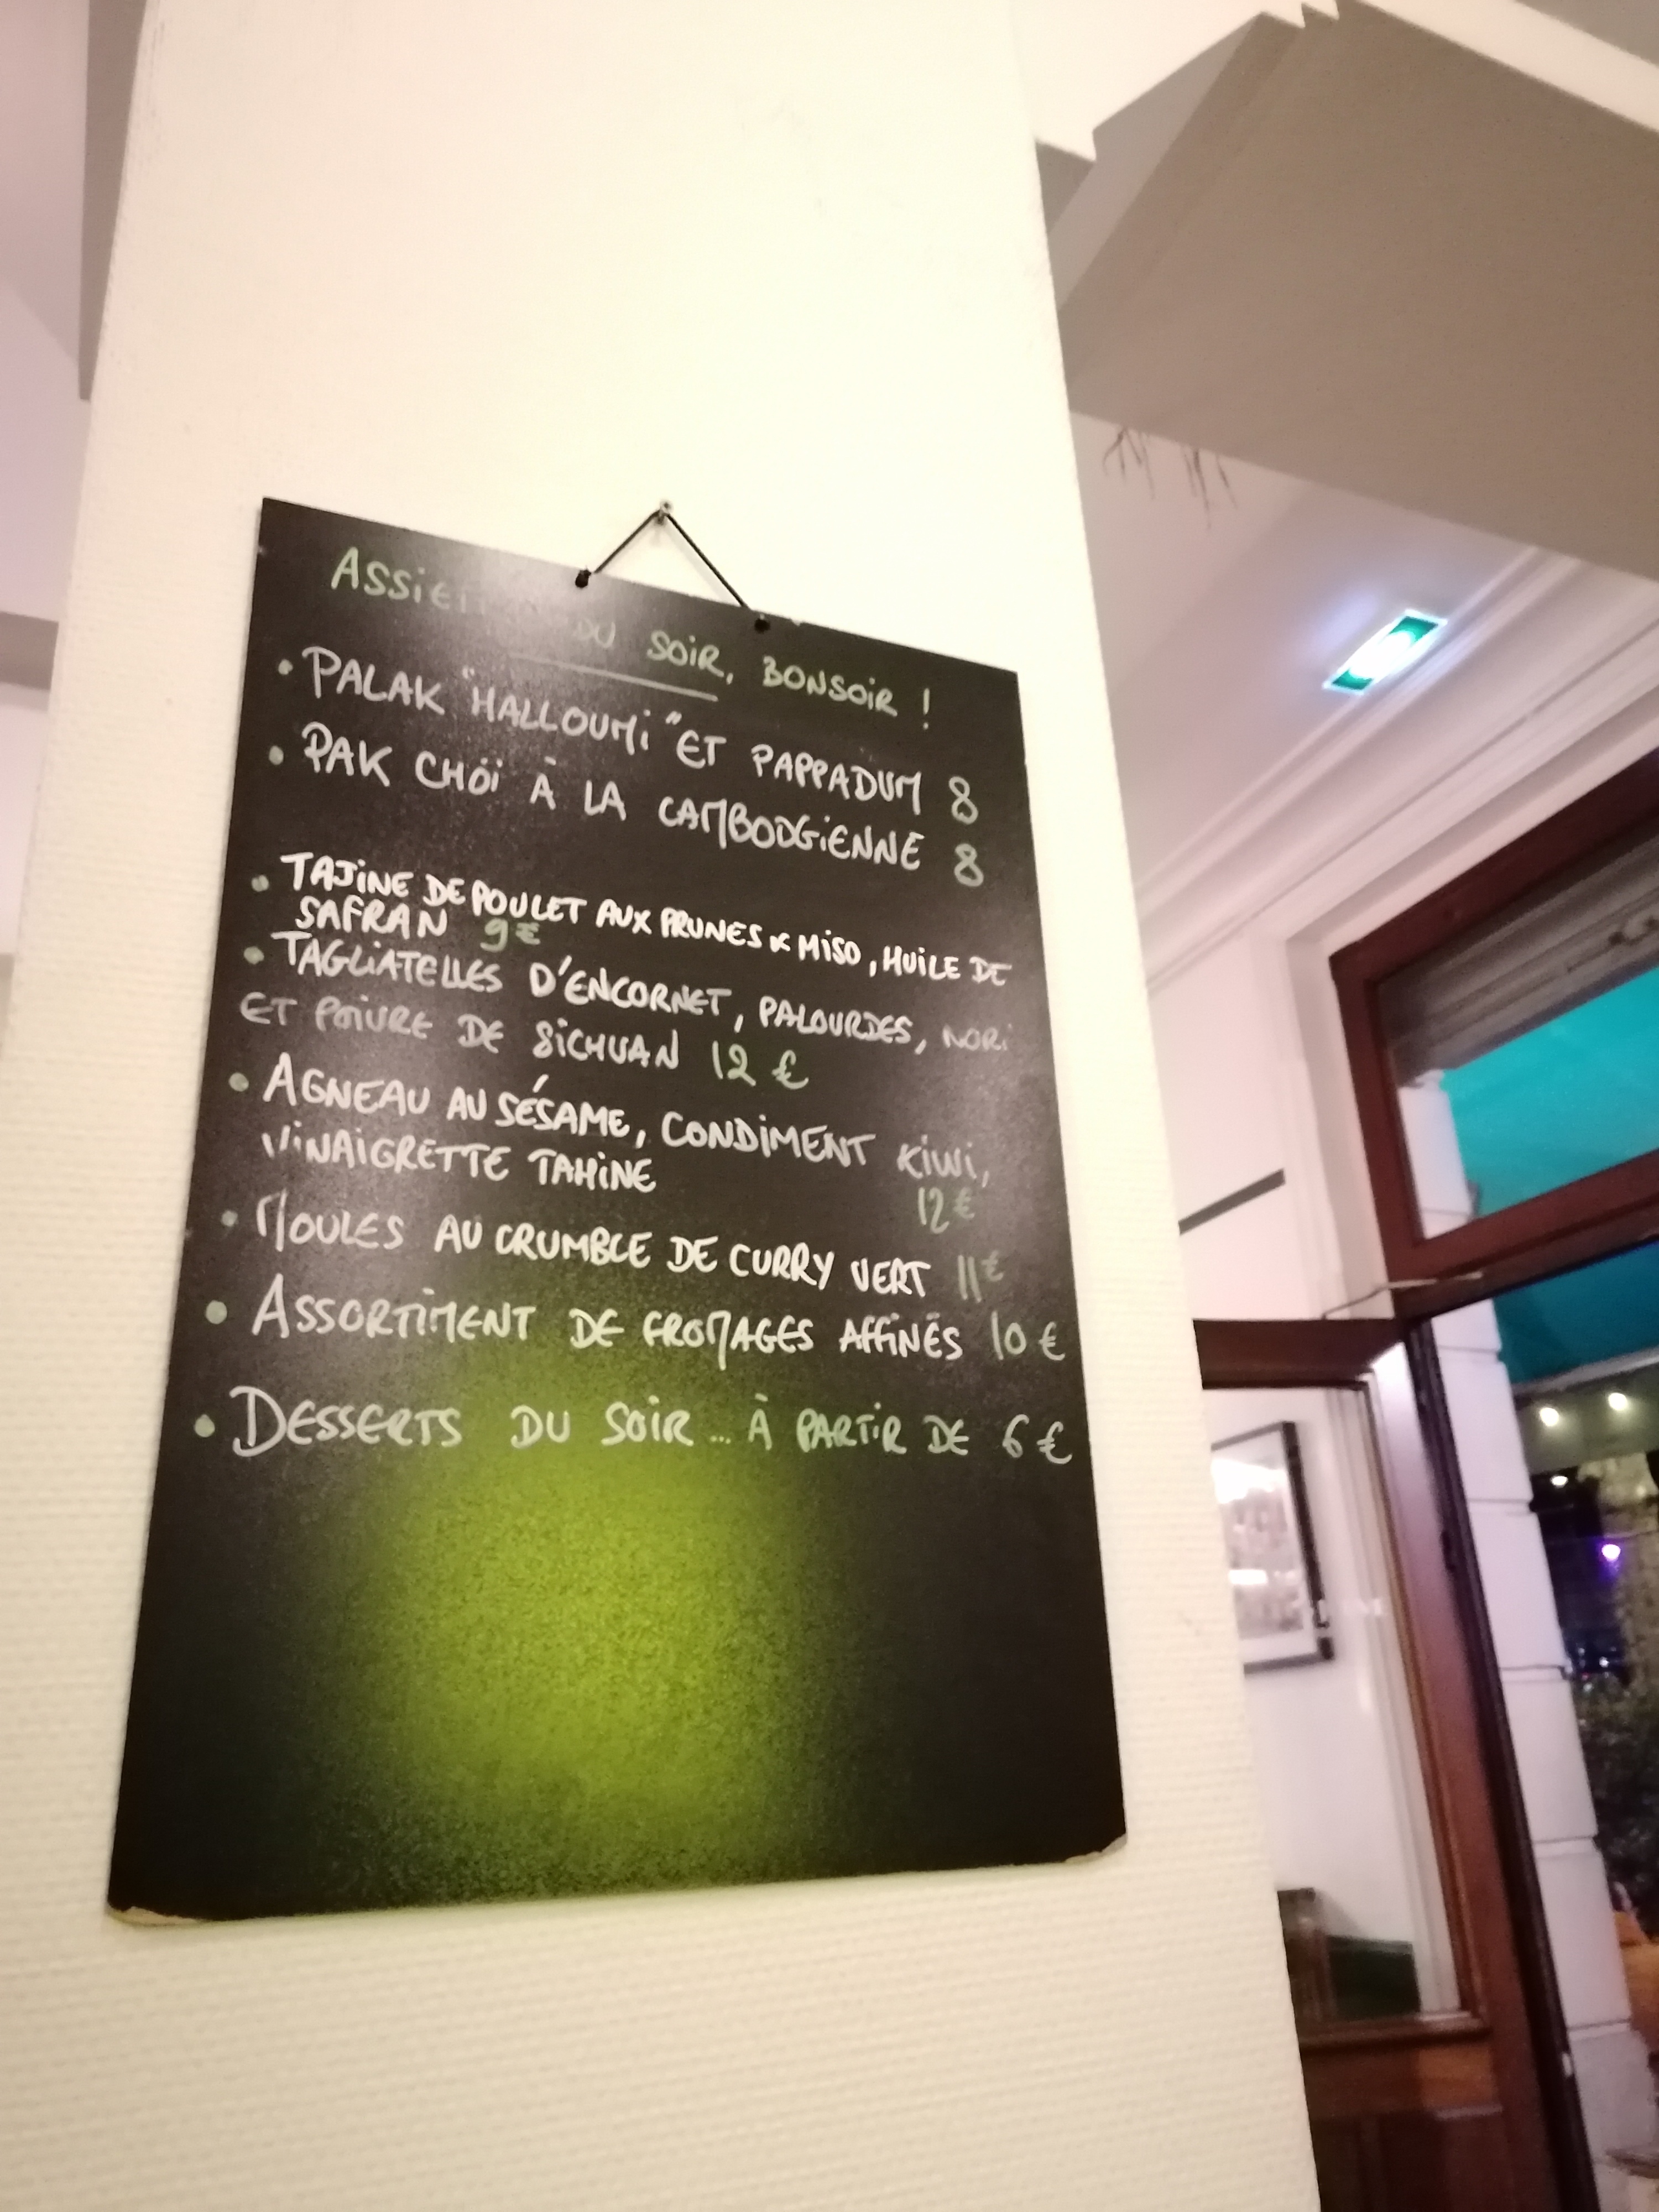 DU SOIR, BONSOIR !
• PALAK "HALLOUMI" ET PAPPADUM 8
• PAK CHOÏ À LA CAMBODGIENNE 8
• TAJINE DE POULET AUX PRUNES & MISO, HUILE DE
SAFRAN 9€
• TAGLIATELLES D'ENCORNET, PALOURDES, NORI
ET POIVRE DE SICHUAN 12 €
• AGNEAU AU SÉSAME, CONDIMENT KIWI,
VINAIGRETTE TAHINE
12€
• MOULES AU CRUMBLE DE CURRY VERT 11€
• ASSORTIMENT DE FROMAGES AFFINÉS 10 €
• DESSERTS DU SOIR... À PARTIR DE 6 €